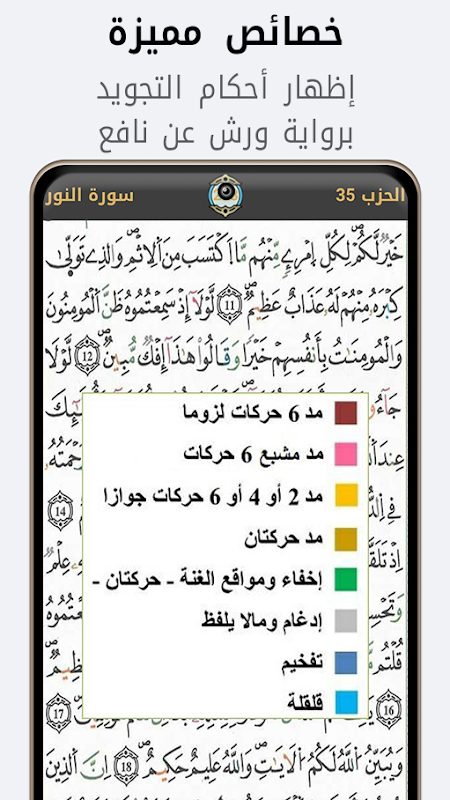 خصائص مميزة
إظهار أحكام التجويد
برواية ورش عن نافع
الحزب 35
سورة النور
خَيْرٌ لَّكُمْ لِكُلِّ اِمْرِےٕٖ مِّنْهُم مَّا اَكْتَسَبَ مِنَ اَلِاثْمِ وَالذِے تَوَلّ۪ىٰ
كِبْرَهُۥ مِنْهُمْ لَهُۥ عَذَابٌ عَظِيمٌ 11 لَّوْلَآ إِذْ سَمِعْتُمُوهُ ظَنَّ اَلْمُومِنُونَ
وَالْمُومِنَٰتُ بِأَنفُسِهِمْ خَيْراً وَقَالُواْ هَٰذَآ إِفْكٌ مُّبِينٌ 12 لَّوْلَا
جَآءُو
مد 6 حركات لزوما
مد مشبع 6 حركات
عِندَ
مد 2 أو 4 أو 6 حركات جوازا
فِے
14
مد حركتان
إخفاء ومواقع الغنة - حركتان -
عِلْمٌ
إدغام ومالا يلفظ
سَمِعْتُمُوهُ
تفخيم
قُلْتُم
قلقلة
16
17
وَيُبَيِّنُ اُللَّهُ لَكُمُ اُلَايَٰتِ وَاللَّهُ عَلِيمٌ حَكِيمٌ 18 إِنَّ اَلذِينَ